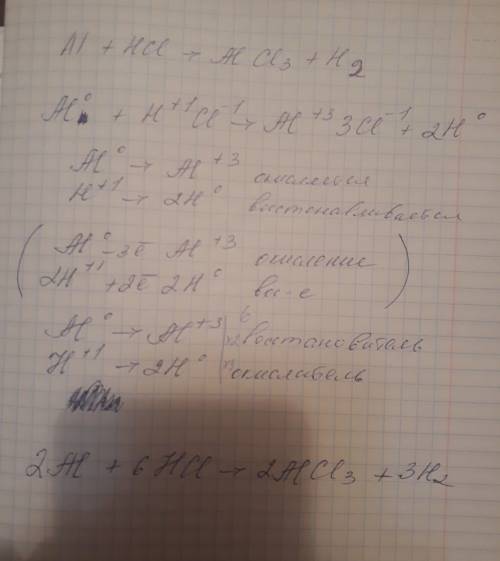 Al + HCl → AlCl₃ + H₂
Al⁰ + H⁺¹Cl⁻¹ → Al⁺³3Cl⁻¹ + 2H⁰
Al⁰ → Al⁺³ окисляется
H⁺¹ → 2H⁰ восстанавливается
Al⁰ -3ē Al⁺³ окисление
2H⁺¹ +2ē 2H⁰ вос-е
6
Al⁰ → Al⁺³ | восстановитель
H⁺¹ → 2H⁰ | окислитель
2Al + 6HCl → 2AlCl₃ + 3H₂